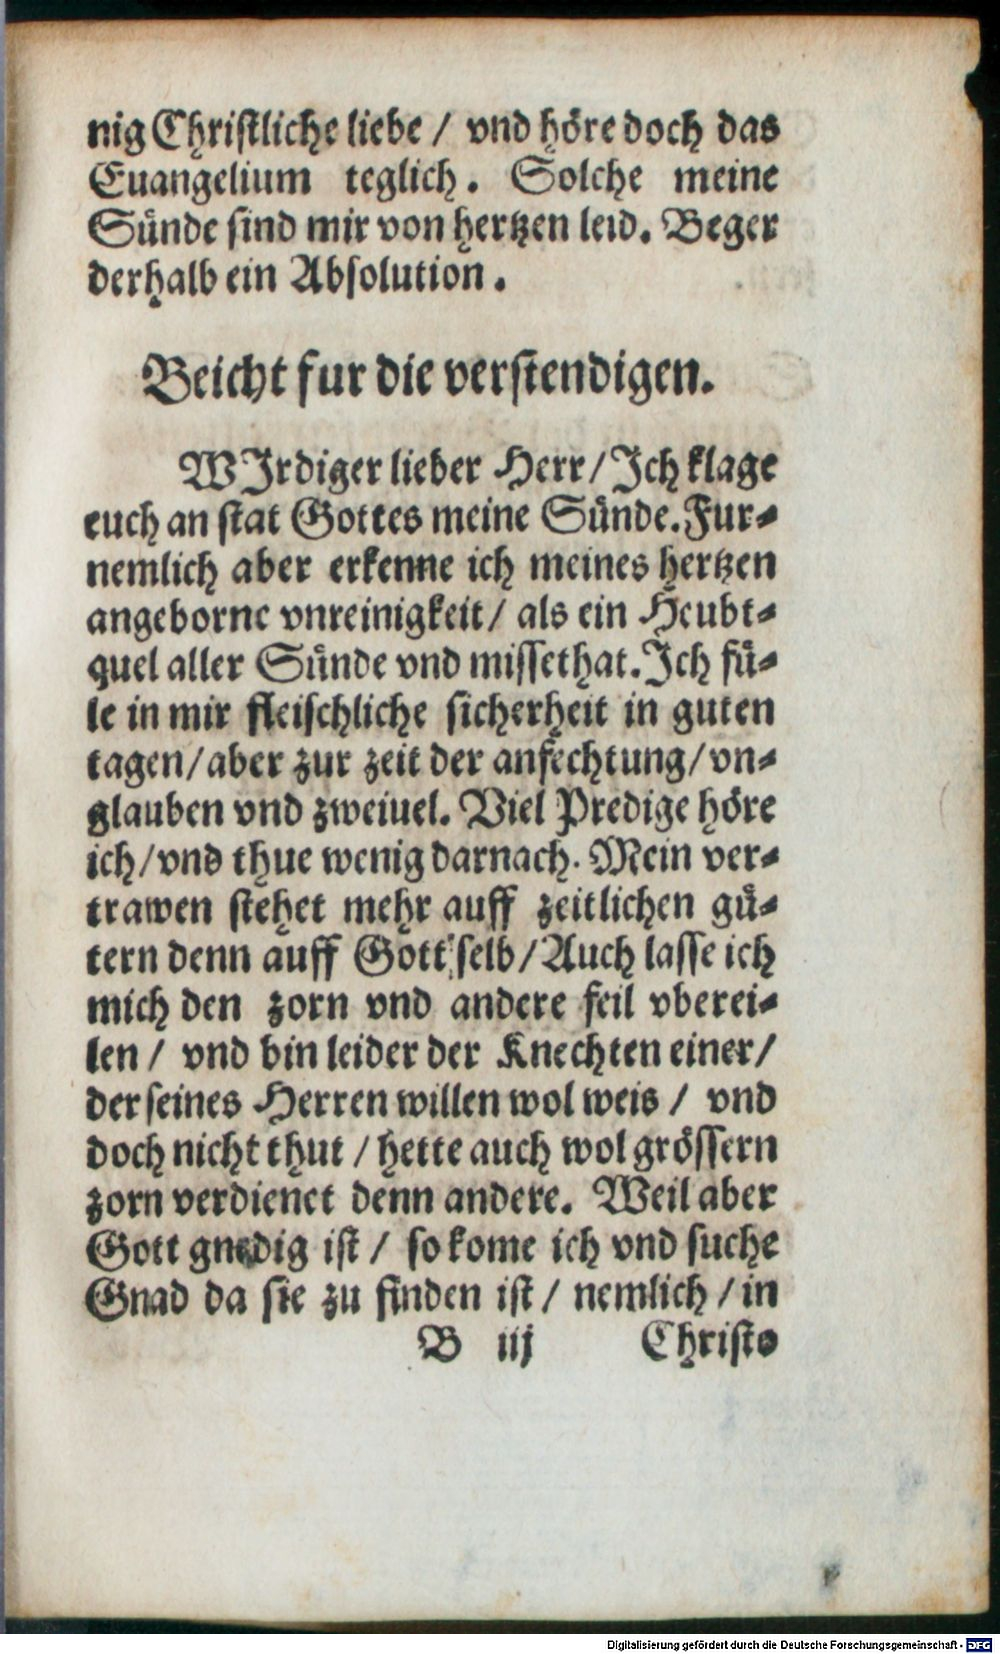 nig Christliche liebe / vnd höre doch das
Euangelium teglich. Solche meine
Sünde sind mir von hertzen leid. Beger
derhalb ein Absolution.
Beicht fur die verstendigen.
WJrdiger lieber Herr/ Jch klage
euch an stat Gottes meine Sünde. Fur-
nemlich aber erkenne ich meines hertzen
angeborne vnreinigkeit/ als ein Heubt-
quel aller Sünde vnd missethat. Jch fü-
le in mir fleischliche sicherheit in guten
tagen/ aber zur zeit der anfechtung/ vn-
glauben vnd zweiuel. Viel Predige höre
ich/ vnd thue wenig darnach. Mein ver-
trawen stehet mehr auff zeitlichen gü-
tern denn auff Gott selb/ Auch lasse ich
mich den zorn vnd andere feil vberei-
len / vnd bin leider der Knechten einer/
der seines Herren willen wol weis / vnd
doch nicht thut / hette auch wol grössern
zorn verdienet denn andere. Weil aber
Gott gnedig ist / so kome ich vnd suche
Gnad da sie zu finden ist / nemlich / in
B iij Christo
Digitalisierung gefördert durch die Deutsche Forschungsgemeinschaft - DFG